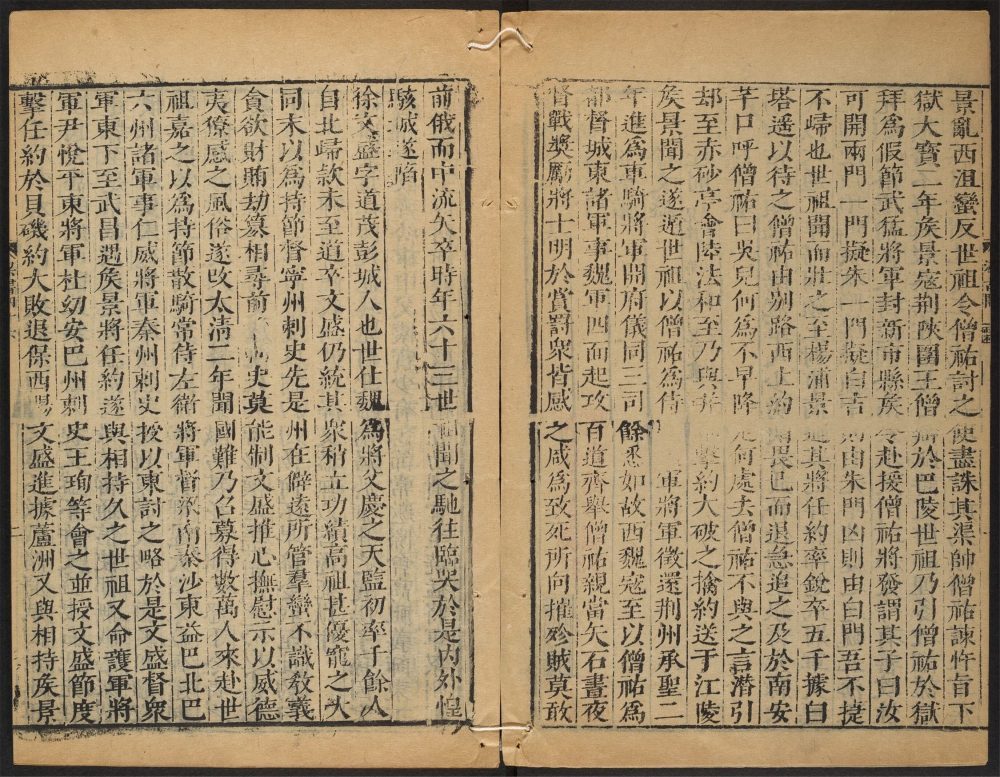 景亂西沮蠻反世祖令僧祐討之使盡誅其渠帥僧祐諫忤旨下
獄大寶二年矦景寇荆陜圍王僧辯於巴陵世祖乃引僧祐於獄
拜為假節武猛將軍封新市縣矦令赴援僧祐將發謂其子曰汝
可開兩門一門擬朱一門擬白吉則由朱門凶則由白門吾不捷
不歸也世祖聞而壯之至楊浦景遣其將任約率銳卒五千據白
塔遥以待之僧祐由别路西上約謂畏巳而退急追之及於南安
芊口呼僧祐曰吳兒何為不早降走何處去僧祐不與之言潛引
却至赤砂亭會陸法和至乃與并擊約大破之擒約送于江陵
矦景聞之遂遁世祖以僧祐為侍 軍將軍徵還荆州承聖二
年進為車騎將軍開府儀同三司餘悉如故西魏寇至以僧祐為
都督城東諸軍事魏軍四面起攻百道齊舉僧祐親當矢石晝夜
督戰奬厲將士明於賞罰衆皆感之咸為致死所向摧殄賊莫敢
前俄而中流矢卒時年六十三世祖聞之馳往臨哭於是内外惶
駭城遂陷
徐文盛字道茂彭城人也世仕魏為將父慶之天監初率千餘人
自北歸款未至道卒文盛仍統其衆稍立功績高祖甚優寵之大
同末以為持節督寧州刺史先是州在僻遠所管羣蠻不識敎義
貪欲財賄劫篡相尋前 史莫能制文盛推心撫慰示以威德
夷獠感之風俗遂改太淸二年聞國難乃召募得數萬人來赴世
祖嘉之以為持節散騎常侍左衛將軍督梁南秦沙東益巴北巴
六州諸軍事仁威將軍秦州刺史授以東討之略於是文盛督衆
軍東下至武昌遇矦景將任約遂與相持久之世祖又命護軍將
軍尹悅平東將軍杜幼安巴州刺史王珣等會之並授文盛節度
擊任約於貝磯約大敗退保西陽文盛進據蘆洲又與相持矦景